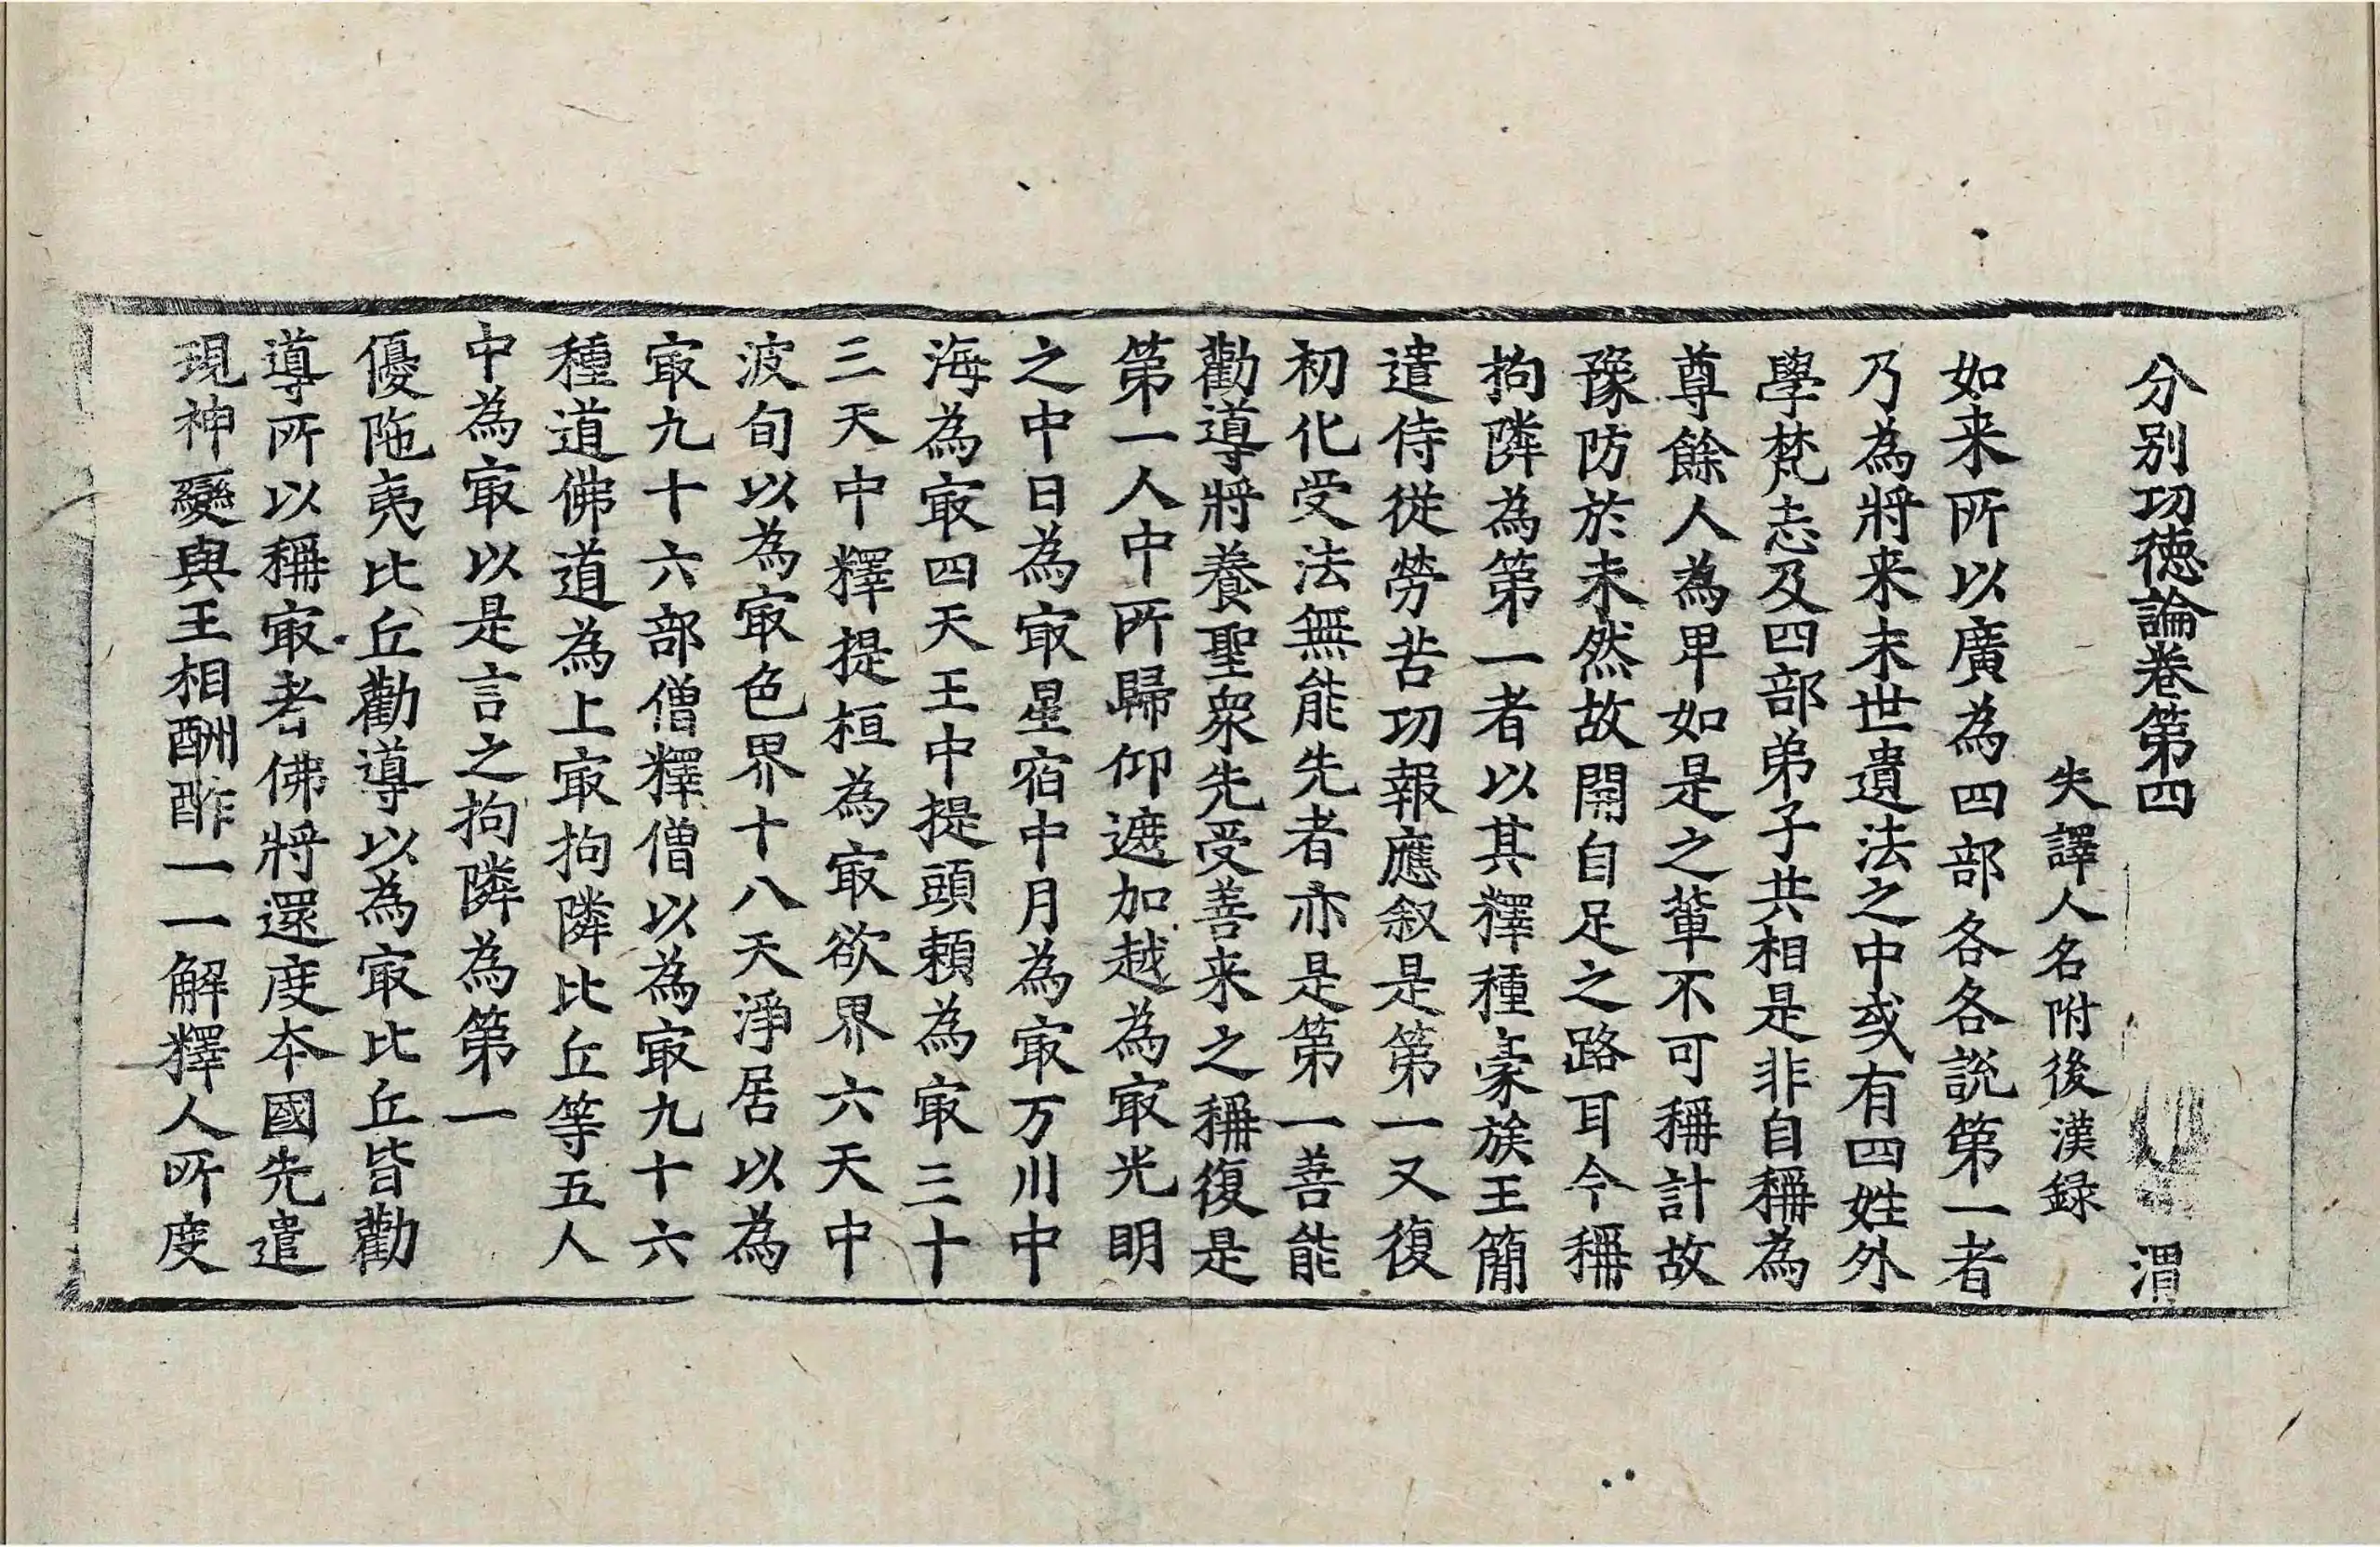 分別功徳論卷第四 渭
失譯人名附後漢録
如来所以廣為四部各各説第一者
乃為將来末世遺法之中或有四姓外
學梵志及四部弟子共相是非自稱為
尊餘人為卑如是之輩不可稱計故
豫防於未然故開自足之路耳今稱
拘隣為第一者以其釋種豪族王簡
遣侍從勞苦功報應叙是第一又復
初化受法無能先者亦是第一善能
勸導將養聖衆先受善来之稱復是
第一人中所歸仰遮加越為㝡光明
之中日為㝡星宿中月為㝡万川中
海為㝡四天王中提頭賴為㝡三十
三天中釋提桓為㝡欲界六天中
波旬以為㝡色界十八天淨居以為
㝡九十六部僧釋僧以為㝡九十六
種道佛道為上㝡拘隣比丘等五人
中為㝡以是言之拘隣為第一
優陁夷比丘勸導以為㝡比丘皆勸
導所以稱㝡者佛將還度本國先遣
現神變與王相酬酢一一解釋人所度